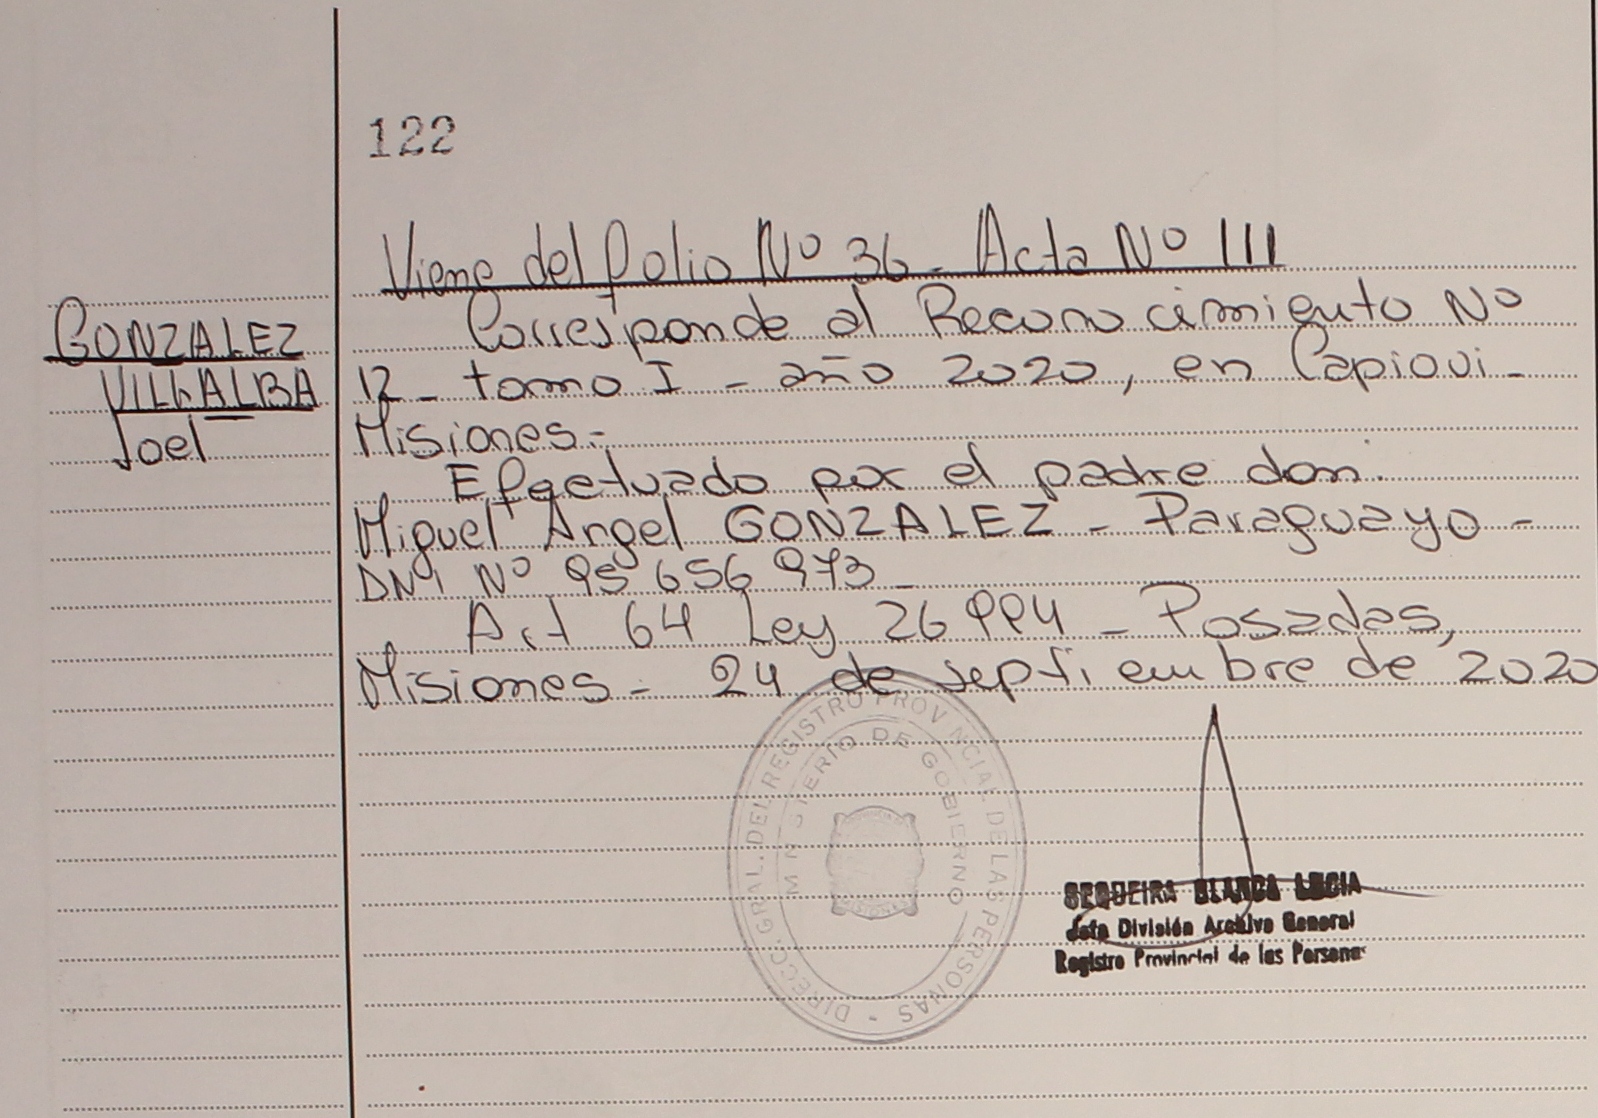 122
Viene del folio Nº 36 - Acta Nº 111
GONZALEZ
VILLALBA
Joel
Corresponde al Reconocimiento Nº
12 - tomo I - año 2020, en Capiovi -
Misiones.-
Efectuado por el padre don:
Miguel Angel GONZALEZ - Paraguayo -
DNI Nº 95 656 973 -
Art 64 Ley 26994 - Posadas,
Misiones - 24 de septiembre de 2020
DIRECC. GRAL. DEL REGISTRO PROVINCIAL DE LAS PERSONAS -
MINISTERIO DE GOBIERNO
MISIONES
SEQUEIRA BLANCA LUCIA
Jefa División Archivo General
Registro Provincial de las Personas